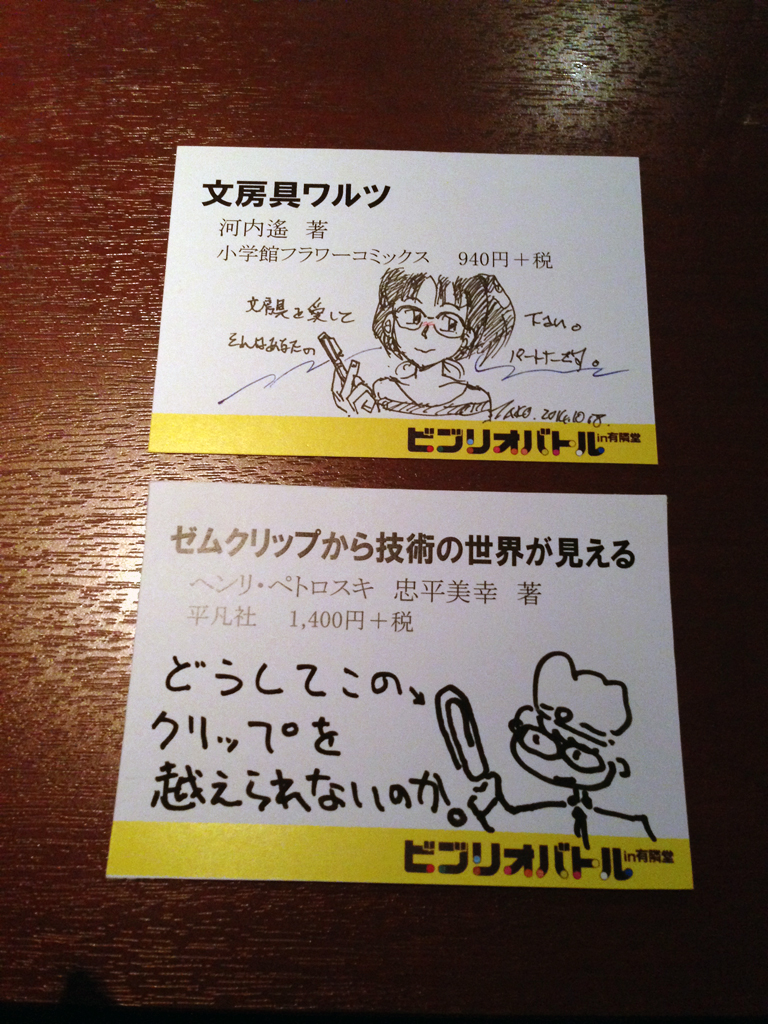 文房具ワルツ
河内遙 著
小学館フラワーコミックス 940円+税
文房具を愛して下さい。
そんなあなたのパートナーです。
ビブリオバトルin有隣堂
ゼムクリップから技術の世界が見える
ヘンリ・ペトロスキ 忠平美幸 著
平凡社 1,400円+税
どうしてこの
クリップを
越えられないのか。
ビブリオバトルin有隣堂